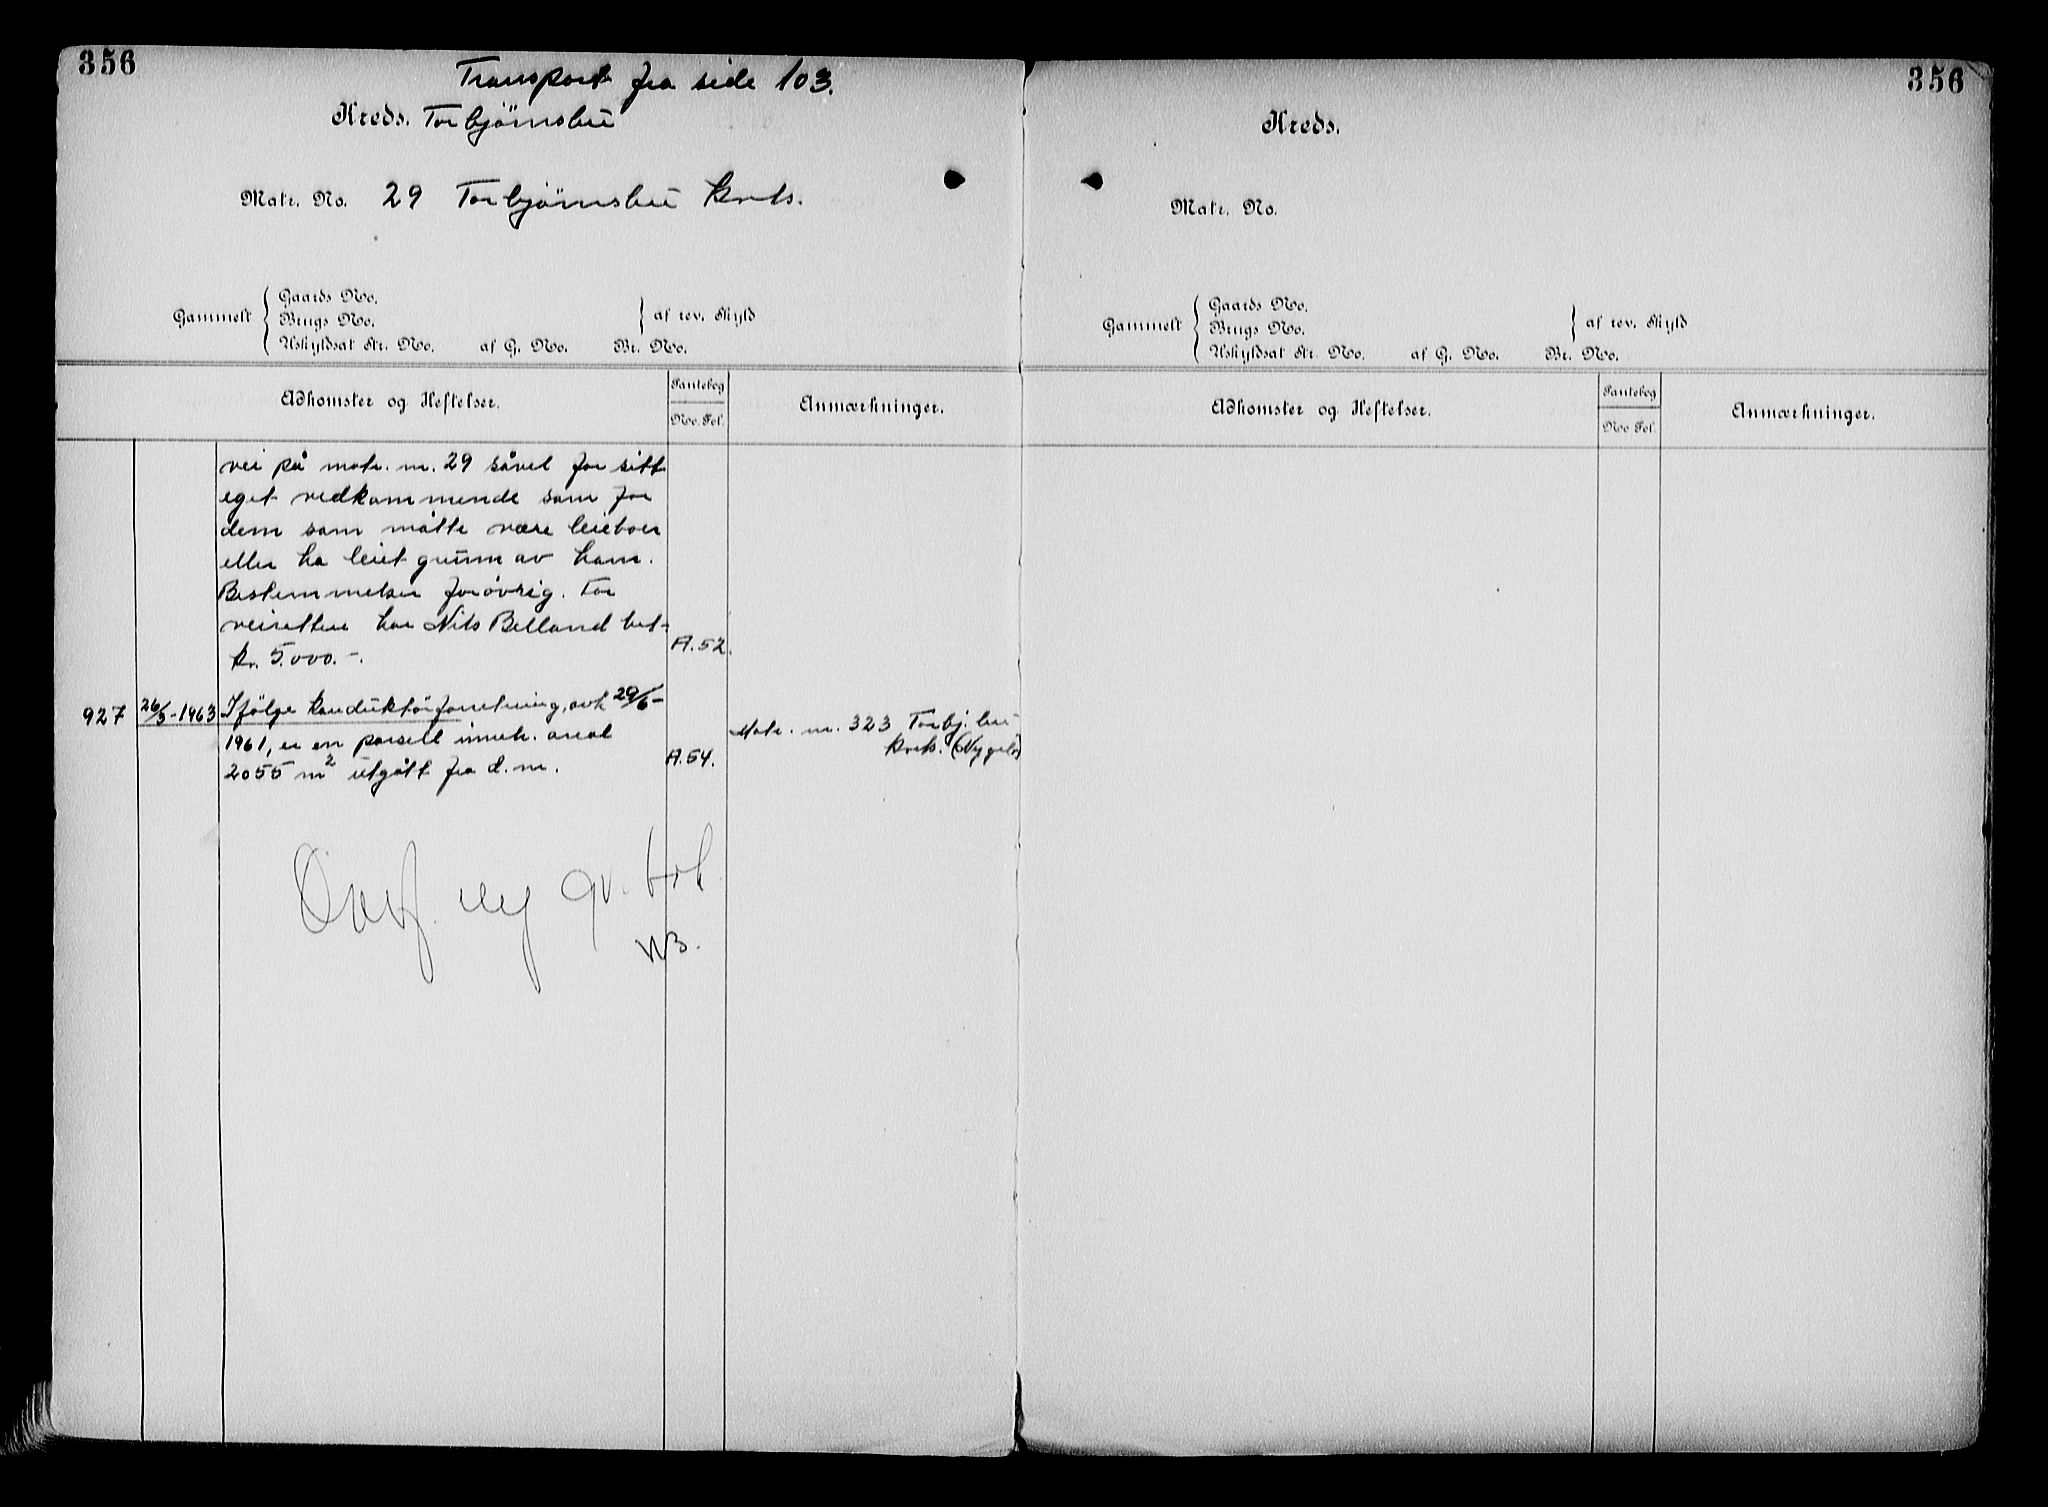 356
Transport fra side 103.
Kreds. Torbjørnsbu
Matr. No. 29 Torbjørnsbu krets.
Gammelt
Gaards No.
Brugs No.
Uskyldsat Str. No. af G. No. Br. No.
af rev. Skyld
Adkomster og Heftelser.
Pantebog
No. Fol.
Anmærkninger.
vei på matr. nr. 29 såvel for sitt
eget vedkommende som for
dem som måtte være leieboer
eller ha leiet grunn av ham.
Bestemmelser forøvrig. For
veiretten har Nils Belland bet.
kr. 5.000.-.
A.52.
927 26/3-1963 Ifølge konduktørforretning, avh. 29/6-
1961, er en parsell inneh. areal
2055 m² utgått fra d. nr.
A.54.
Matr. nr. 323 Torbj. bu
krets. (Nygels)
Overf. ny gr. bok
356
Kreds.
Matr. No.
Gammelt
Gaards No.
Brugs No.
Uskyldsat Str. No. af G. No. Br. No.
af rev. Skyld
Adkomster og Heftelser.
Pantebog
No Fol.
Anmærkninger.